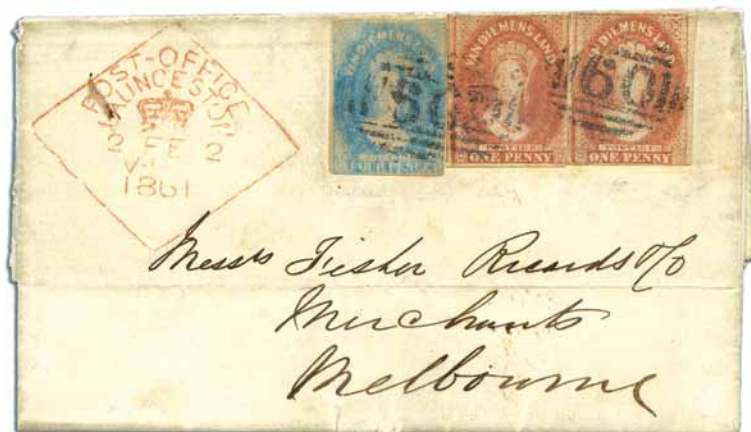 POST-OFFICE
LAUNCESTON
2 FE 2
1861
VAN DIEMENS LAND
FOUR PENCE
VAN DIEMENS LAND
POSTAGE
ONE PENNY
VAN DIEMENS LAND
POSTAGE
ONE PENNY
60
Messrs Fisher Ricards & Co
Merchants
Melbourne